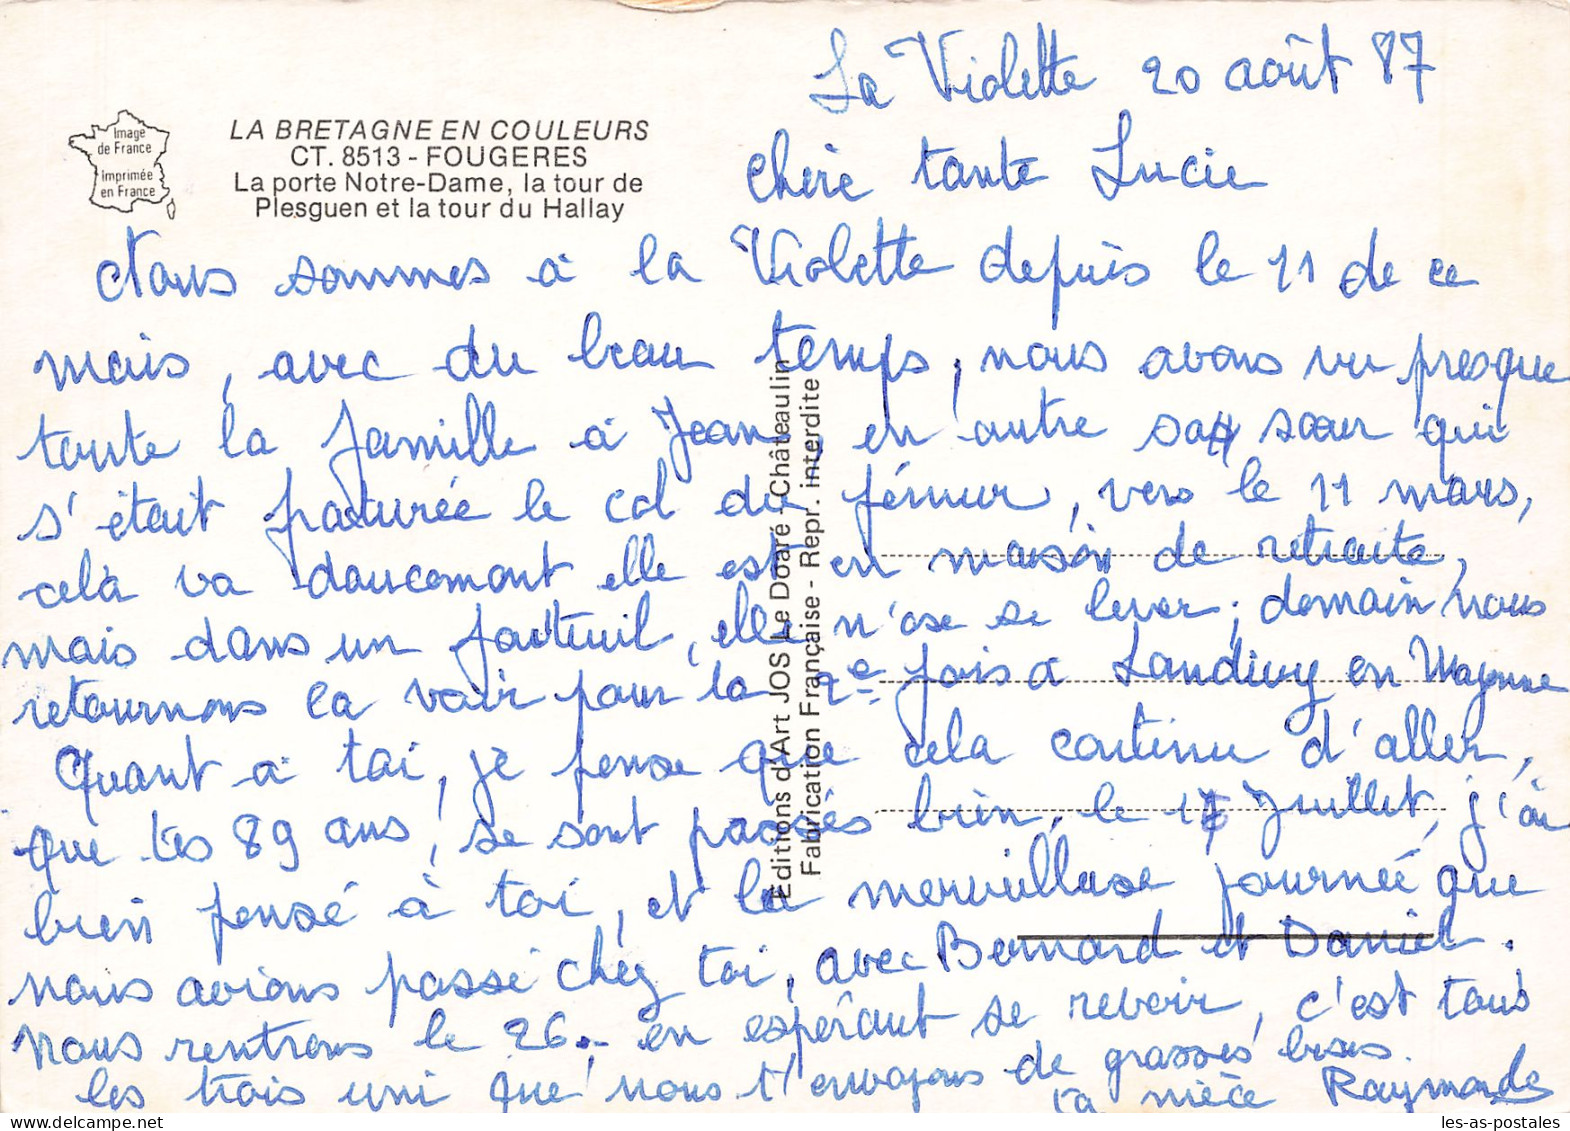 La Violette 20 août 87
Image
de France
Imprimée
en France
LA BRETAGNE EN COULEURS
CT. 8513 - FOUGERES
La porte Notre-Dame, la tour de
Plesguen et la tour du Hallay
Editions d'Art JOS Le Doaré - Châteaulin
Fabrication Française - Repr. interdite
Chère tante Lucie
Nous sommes à la Violette depuis le 11 de ce
mois, avec du beau temps, nous avons vu presque
toute la famille à Jean, en autre sa soeur qui
s'était fracturée le col du fémur, vers le 11 mars,
celà va doucement elle est en maison de retraite,
mais dans un fauteuil, elle n'ose se lever; domain nous
retournons la voir pour la 2e fois à Landivy en Mayenne
Quant à toi, je pense que cela continu d'aller,
que tes 89 ans, se sont passés bien, le 17 Juillet, j'ai
bien pensé à toi, et la merveilleuse journée que
nous avions passé chez toi, avec Bernard et Daniel.
Nous rentrons le 26.- en espérant se revoir, c'est tous
les trois uni que nous t'envoyons de grosses bises.
ta nièce Raymonde
les-as-postales